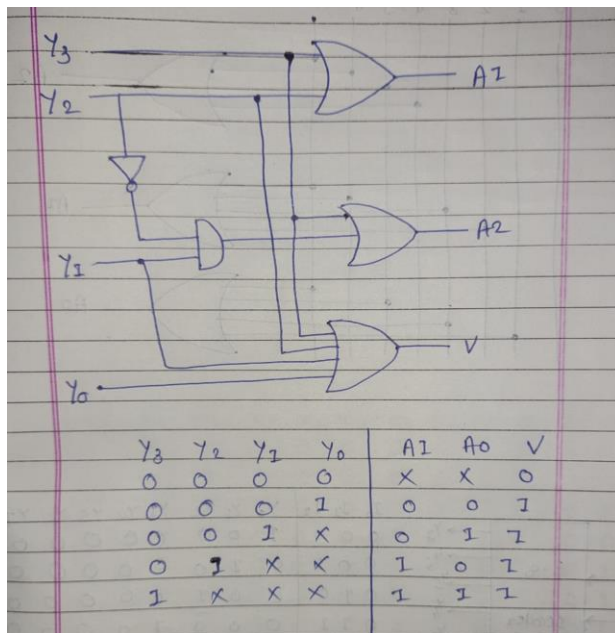 Y3
A1
Y2
A2
Y1
V
Y0
Y3 Y2 Y1 Y0 A1 A0 V
0 0 0 0 X X 0
0 0 0 1 0 0 1
0 0 1 X 0 1 1
0 1 X X 1 0 1
1 X X X 1 1 1